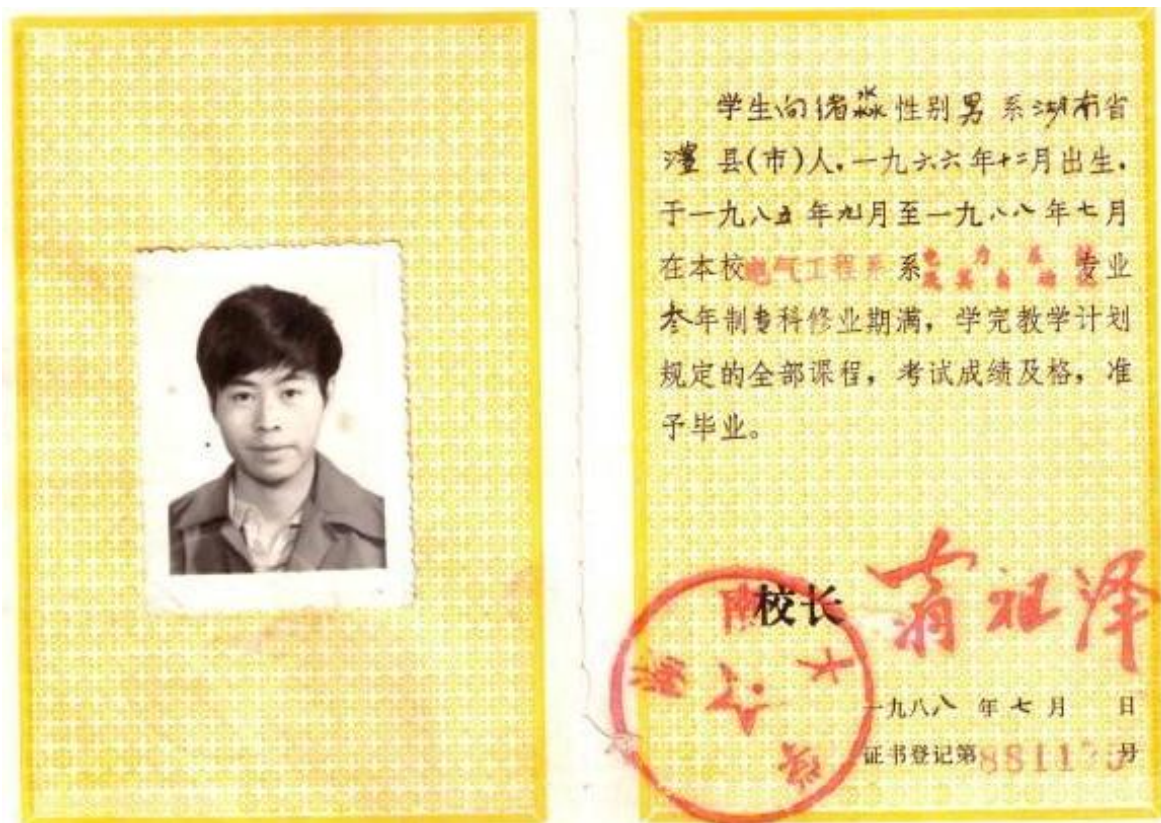 学生向绪淼性别男系湖南省
澧县(市)人.一九六六年十二月出生.
于一九八五年九月至一九八八年七月
在本校电气工程系系电力系统及其自动化专业
叁年制专科修业期满，学完教学计划
规定的全部课程，考试成绩及格，准
予毕业。
校长 翁祖泽
湖南大学
一九八八年七月 日
证书登记第8811号